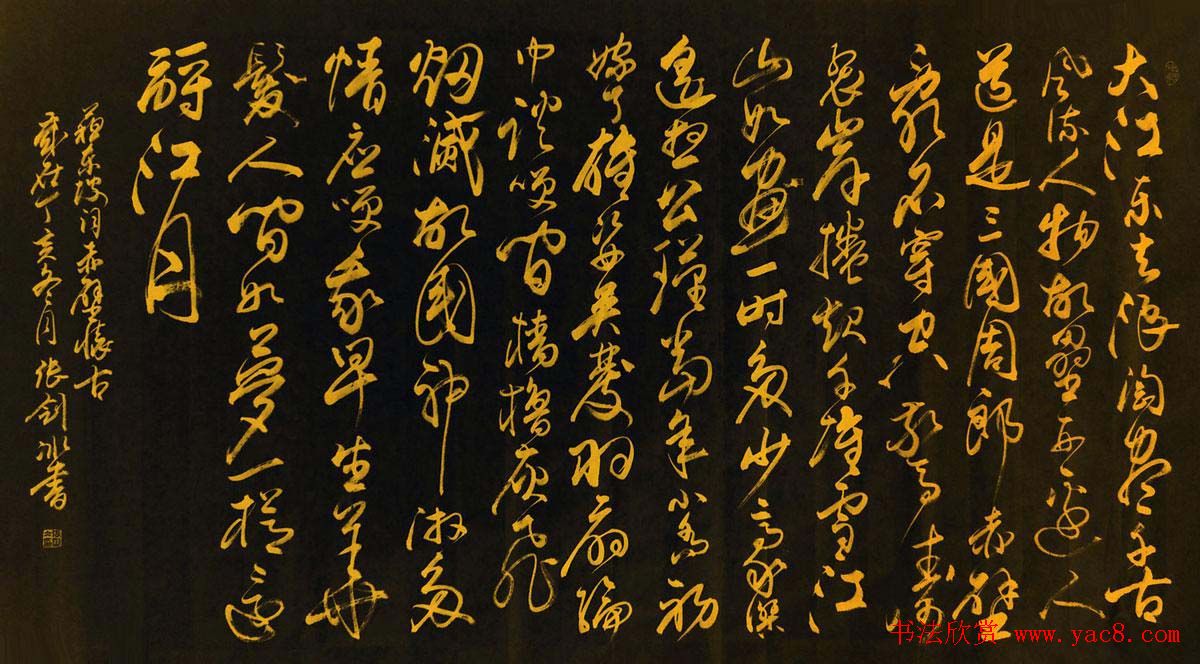 大江东去浪淘尽千古
风流人物故垒西边人
道是三國周郎赤壁
乱石穿空驚涛
裂岸捲起千堆雪江
山如畫一时多少豪傑
遥想公瑾當年小喬初
嫁了雄姿英發羽扇綸
巾談笑间檣櫓灰飛
烟滅故國神游多
情应笑我早生華
髮人间如夢一樽还
酹江月
蘇东坡词赤壁懷古
歲在丁亥冬月张剑冰书
书法欣赏 www.yac8.com